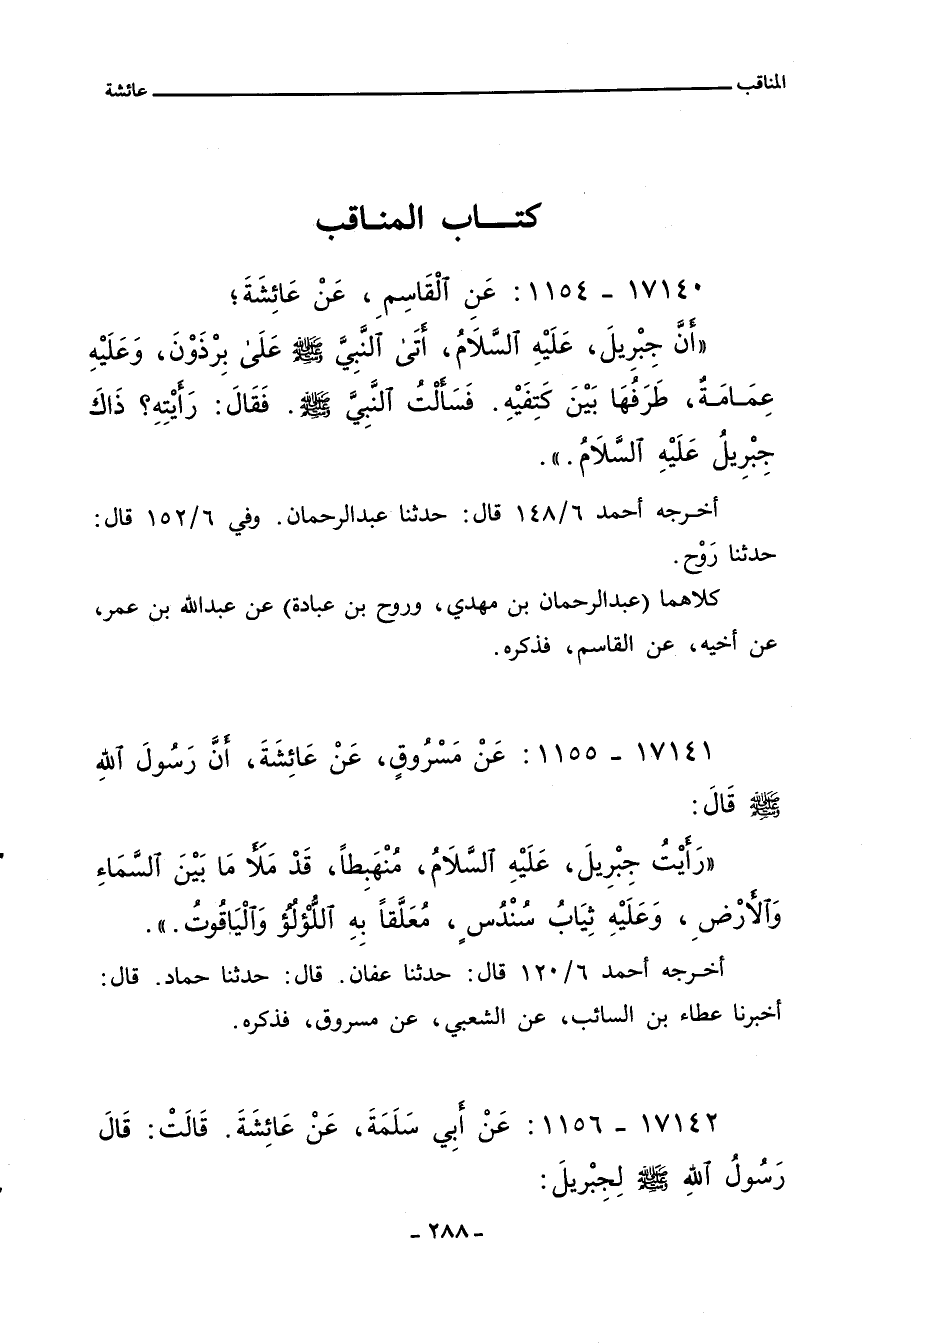 المناقب عائشة
كتـــاب المنـاقب
١٧١٤٠ ـ ١١٥٤ : عَنِ ٱلْقَاسِمِ ، عَنْ عَائِشَةَ ؛
«أَنَّ جِبْرِيلَ، عَلَيْهِ ٱلسَّلَامُ، أَتَىٰ ٱلنَّبِيَّ ﷺ عَلَىٰ بِرْذَوْنَ، وَعَلَيْهِ
عِمَـامَـةٌ، طَرَفُهَا بَيْنَ كَتِفَيْهِ. فَسَأَلْتُ ٱلنَّبِيَّ ﷺ. فَقَالَ: رَأَيْتِهِ؟ ذَاكَ
جِبْرِيلُ عَلَيْهِ ٱلسَّلَامُ.».
أخـرجه أحمد ١٤٨/٦ قال: حدثنا عبدالرحمان. وفي ١٥٢/٦ قال:
حدثنا رَوْح.
كلاهما (عبدالرحمان بن مهدي، وروح بن عبادة) عن عبدالله بن عمر،
عن أخيه، عن القاسم، فذكره.
١٧١٤١ ـ ١١٥٥ : عَنْ مَسْرُوقٍ، عَنْ عَائِشَةَ، أَنَّ رَسُولَ ٱللهِ
ﷺ قَالَ:
«رَأَيْتُ جِبْرِيلَ، عَلَيْهِ ٱلسَّلَامُ، مُنْهَبِطاً، قَدْ مَلَأَ مَا بَيْنَ ٱلسَّمَاءِ
وَٱلْأَرْضِ ، وَعَلَيْهِ ثِيَابُ سُنْدُسٍ ، مُعَلَّقاً بِهِ اللُّؤْلُؤُ وَٱلْيَاقُوتُ.».
أخـرجه أحمد ١٢٠/٦ قال: حدثنا عفان. قال: حدثنا حماد. قال:
أخبرنا عطاء بن السائب، عن الشعبي، عن مسروق، فذكره.
١٧١٤٢ ـ ١١٥٦ : عَنْ أَبِي سَلَمَةَ، عَنْ عَائِشَةَ. قَالَتْ: قَالَ
رَسُولُ ٱللهِ ﷺ لِجِبْرِيلَ:
ـ ٢٨٨ ـ